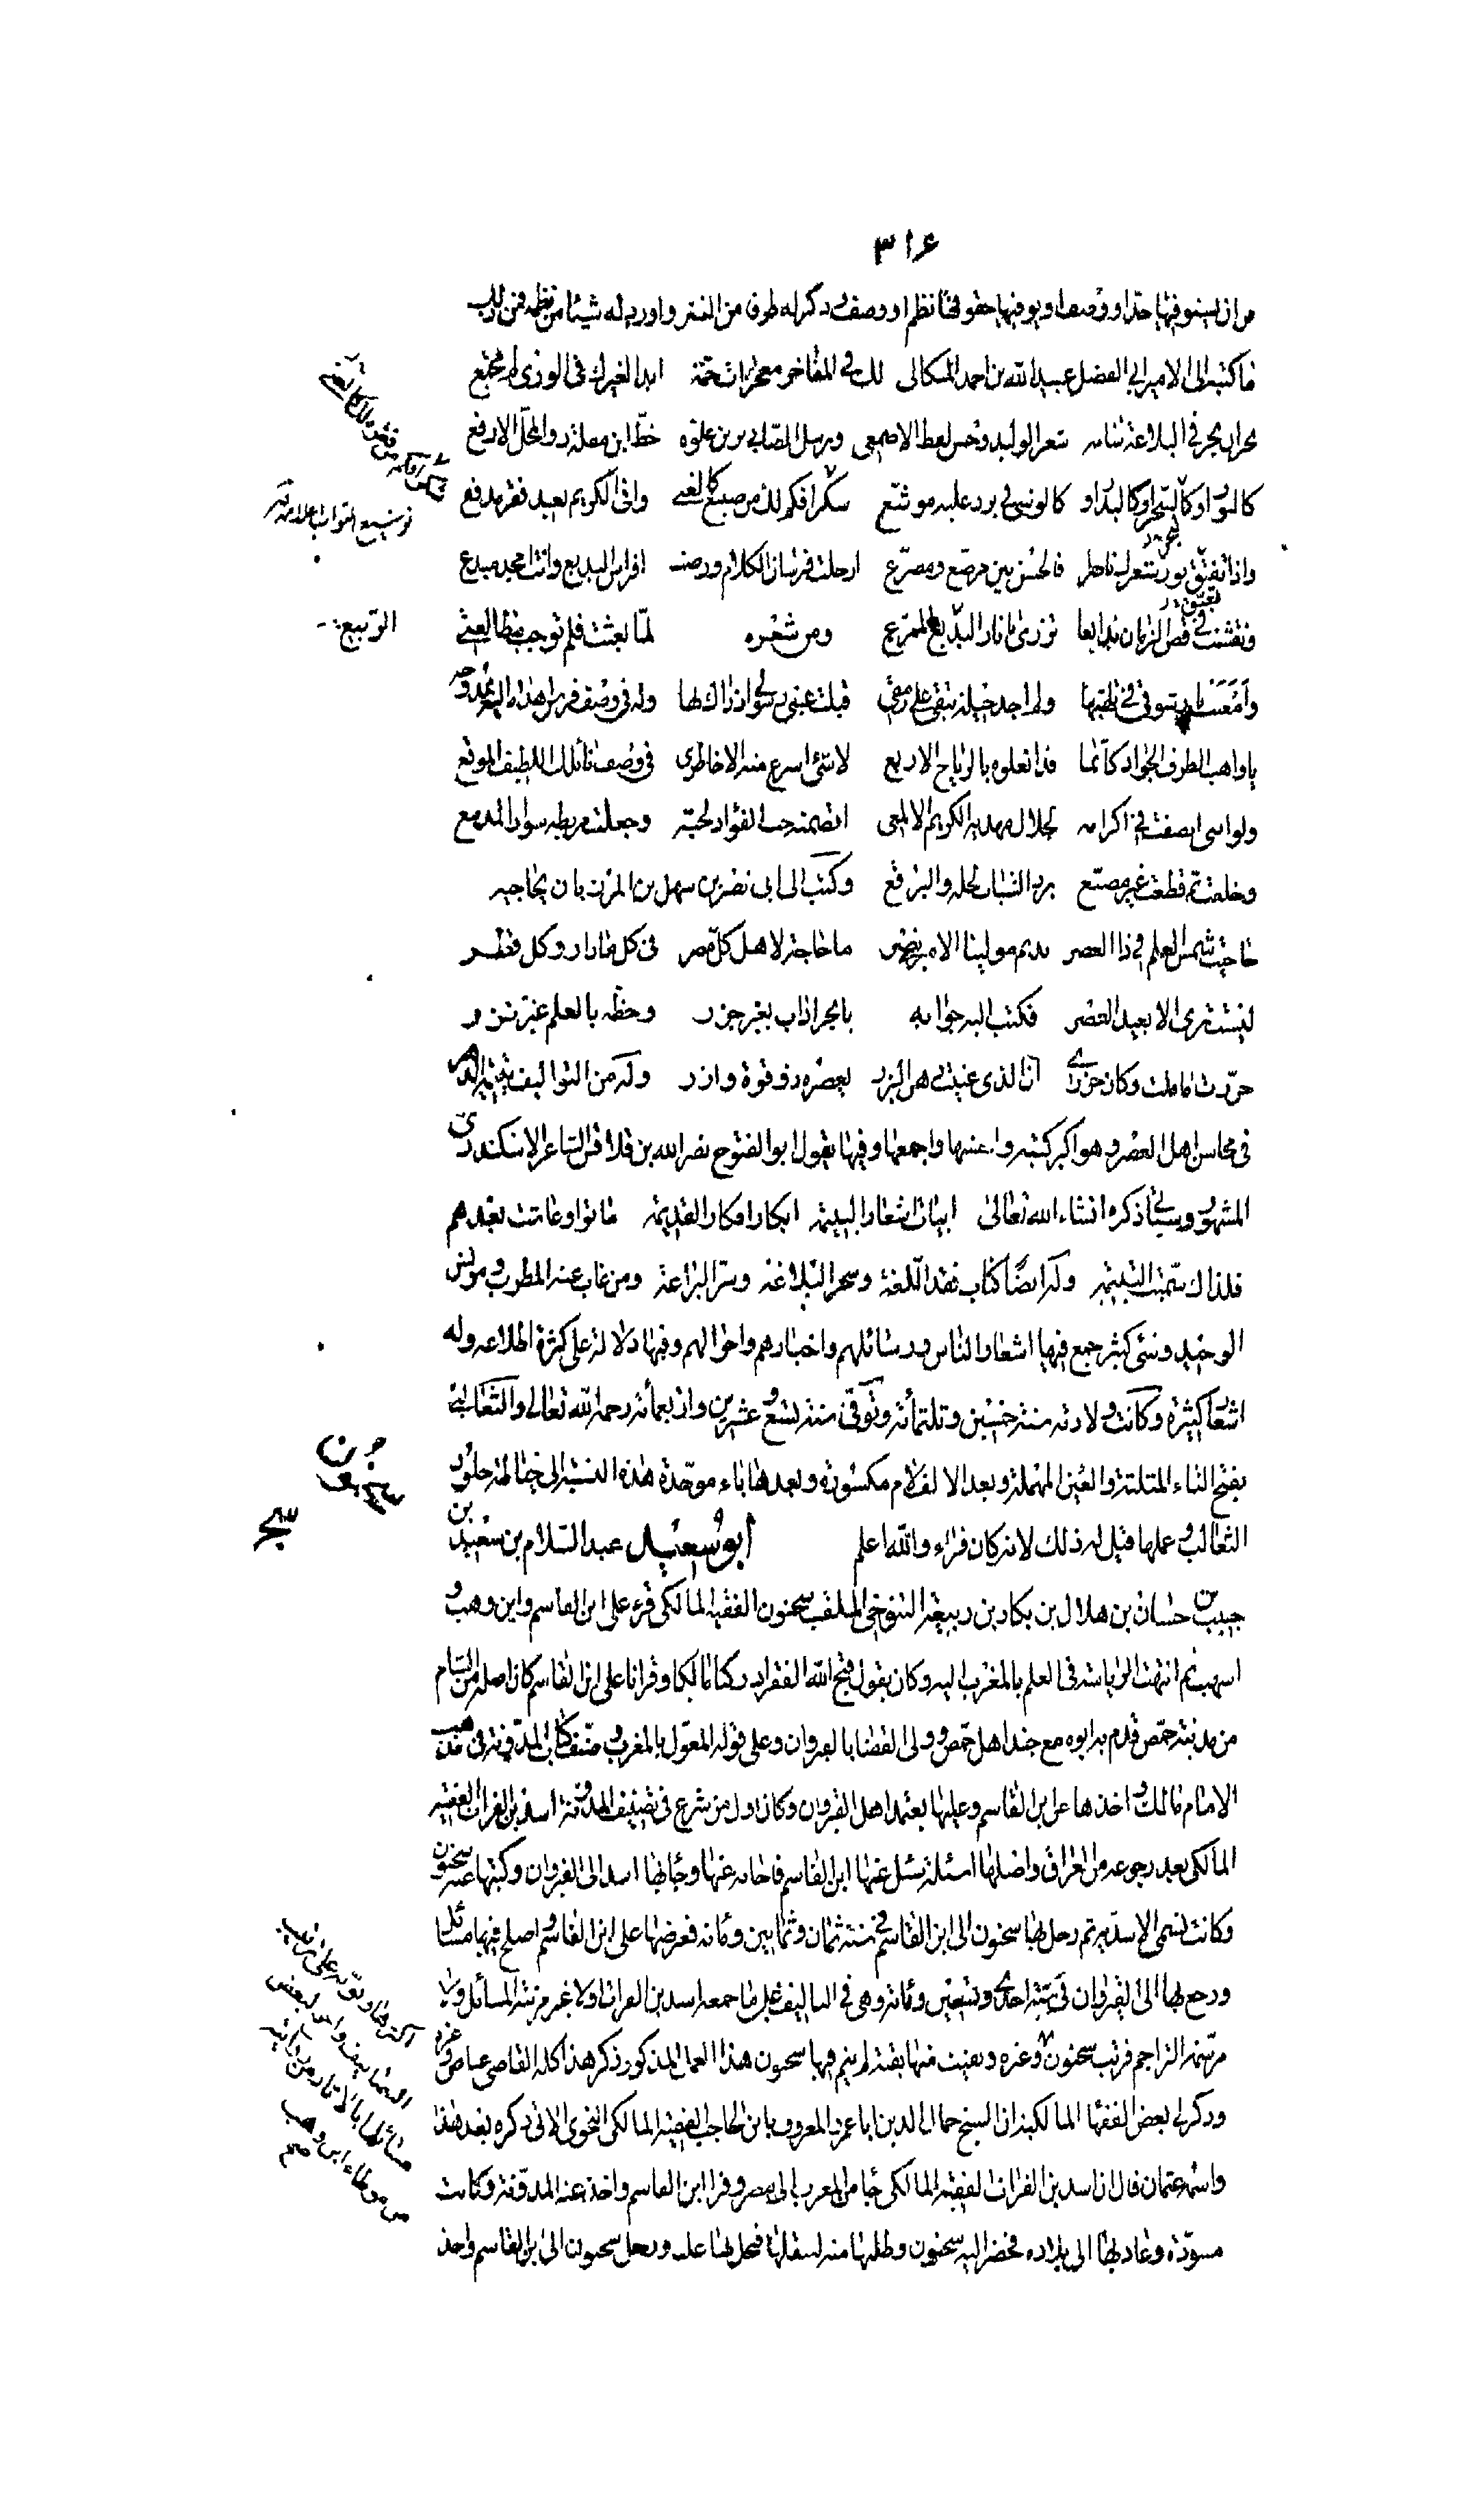 ٣١٤
من ان يستوفيها حد او وصف او يوفيها حقوقها نظم او وصف ذكر له طرف من النثر واورد له شيئا من نظمه فمن ذلك
ما كتبه الى الامير ابي الفضل عبيد الله بن احمد الميكالي لك في المفاخر معجزات جمة ابدا لغيرك في الورى لم تجمع
بحران بحر في البلاغة شابه شعر الوليد وحسن لفظ الاصمعي وترسل الصابي يزين علوه خط ابن مقلة ذو المحل الارفع
كالنور او كالسحر او كالبدر او كالوشي في برد عليه موشع شكرا فكم لك من صنيع كالغنى وافى الكريم بعيد فقر مدقع
واذا تفتق نور شعرك ناضرا فالحسن بين مرصع ومصرع ارجلت فرسان الكلام ورضت افراس البديع وانت امجد مبدع
ونقشت في فص الزمان بدايعا تزري باثار الربيع الممرع ومن شعره لما بعثت فلم توجب مطالعتي
وامعنت نار شوقي في تلهبها ولم اجد حيلة تبقي على رمقي قبلت عيني رسولي اذ راك بها وله في وصف فرس اهداه اليه ممدوحه
يا واهب الطرف الجواد كانما قد انعلوه بالرياح الاربع لا شئ اسرع منه الا خاطري في وصف نائلك اللطيف الموقع
ولو انني انصفت في اكرامه لجلال مهديه الكريم الالمعي اقضمته حب الفؤاد لحبه وجعلت مربطه سواد المدمع
وخلعت ثم قطعت غير مضيع برد الشباب لجله والبرقع وكتب الى ابي نصر بن سهل بن المرزبان يحاجيه
حاجيت شمس العلم في ذا العصر نديم مولينا الامير نصر ما حاجة لاهل كل مصر في كل ما دار وكل قطر
ليست ترى الا بعيد العصر فكتب اليه جوابه يا بحر اداب بغير جزر وحظه بالعلم غير نزر
حزرت ما قلت وكان حزري ان الذي عنيت دهن البزر يعصره ذو قوة وازر وله من التواليف يتيمة الدهر
في محاسن اهل العصر وهو اكبر كتبه واحسنها واجمعها وفيها يقول ابو الفتوح نصر الله بن قلاقس الشاعر الاسكندري
المشهور وسيأتي ذكره انشاء الله تعالى ابيات اشعار اليتيمه ابكار افكار القديمه ماتوا وعاشت بعدهم
فلذاك سميت اليتيمه وله ايضا كتاب فقه اللغة وسحر البلاغة وسر البراعة ومن غاب عنه المطرب ومونس
الوحيد وشئ كثير جمع فيها اشعار الناس ورسائلهم واخبارهم واحوالهم وفيها دلالة على كثرة اطلاعه وله
اشعار كثيرة وكانت ولادته سنة خمسين وثلثمائة وتوفي سنة تسع وعشرين واربعمائة رحمه الله تعالى والثعالبي
بفتح الثاء المثلثة والعين المهملة وبعد الالف لام مكسورة وبعدها باء موحدة هذه النسبة الى خياطة جلود
الثعالب وعملها قيل له ذلك لانه كان فراء والله اعلم ابو سعيد عبد السلام بن سعيد بن
حبيب بن حسان بن هلال بن بكار بن ربيعة التنوخي الملقب سحنون الفقيه المالكي قرء على ابن القاسم وابن وهب و
اشهب ثم انتهت الرياسة في العلم بالمغرب اليه وكان يقول قبح الله الفقر ادركنا مالكا وقرانا على ابن القاسم كان اصله من الشام
من مدينة حمص قدم به ابوه مع جند اهل حمص وولى القضا بالقيروان وعلى قوله المعول بالمغرب وصنف كتاب المدونة في مذهب
الامام مالك واخذها عن ابن القاسم وعليها يعتمد اهل القيروان وكان اول من شرع في تصنيف المدونة اسد بن الفرات الفقيه
المالكي بعد رجوعه من العراق واصلها اسئلة سئل عنها ابن القاسم فاجابه عنها وجاء بها اسد الى القيروان وكتبها عنه سحنون
وكانت تسمى الاسدية ثم رحل بها سحنون الى ابن القاسم في سنة ثمان وثمانين ومائة فعرضها على ابن القاسم واصلح فيها مسائل
ورجع بها الى القيروان في سنة احدى وتسعين ومائة وهي في التاليف على ما جمعه اسد بن الفرات اولا غير مرتبة المسائل ولا
مرسمة التراجم فرتب سحنون اكثرها وبوبه على ترتيب التصانيف واحتج لبعض مسائلها بالاثار من روايته من موطاء ابن وهب صح
وغيره وبقيت منها بقية لم يتم فيها سحنون هذا العمل المذكور ذكر هذا كله القاضي عياض وغيره
وذكر لي بعض الفقها المالكية ان الشيخ جمال الدين ابا عمرو المعروف بابن الحاجب الفقيه المالكي النحوي الاتي ذكره بعد هذا
واسمه عثمان قال ان اسد بن الفرات الفقيه المالكي جا من المغرب الى مصر وقرا ابن القاسم واخذ عنه المدونة وكانت
مسودة وعاد بها الى بلاده فحضر اليه سحنون وطلبها منه لينقلها فبخل بها عليه ورحل سحنون الى ابن القاسم واخذ
الربيع
سحنون